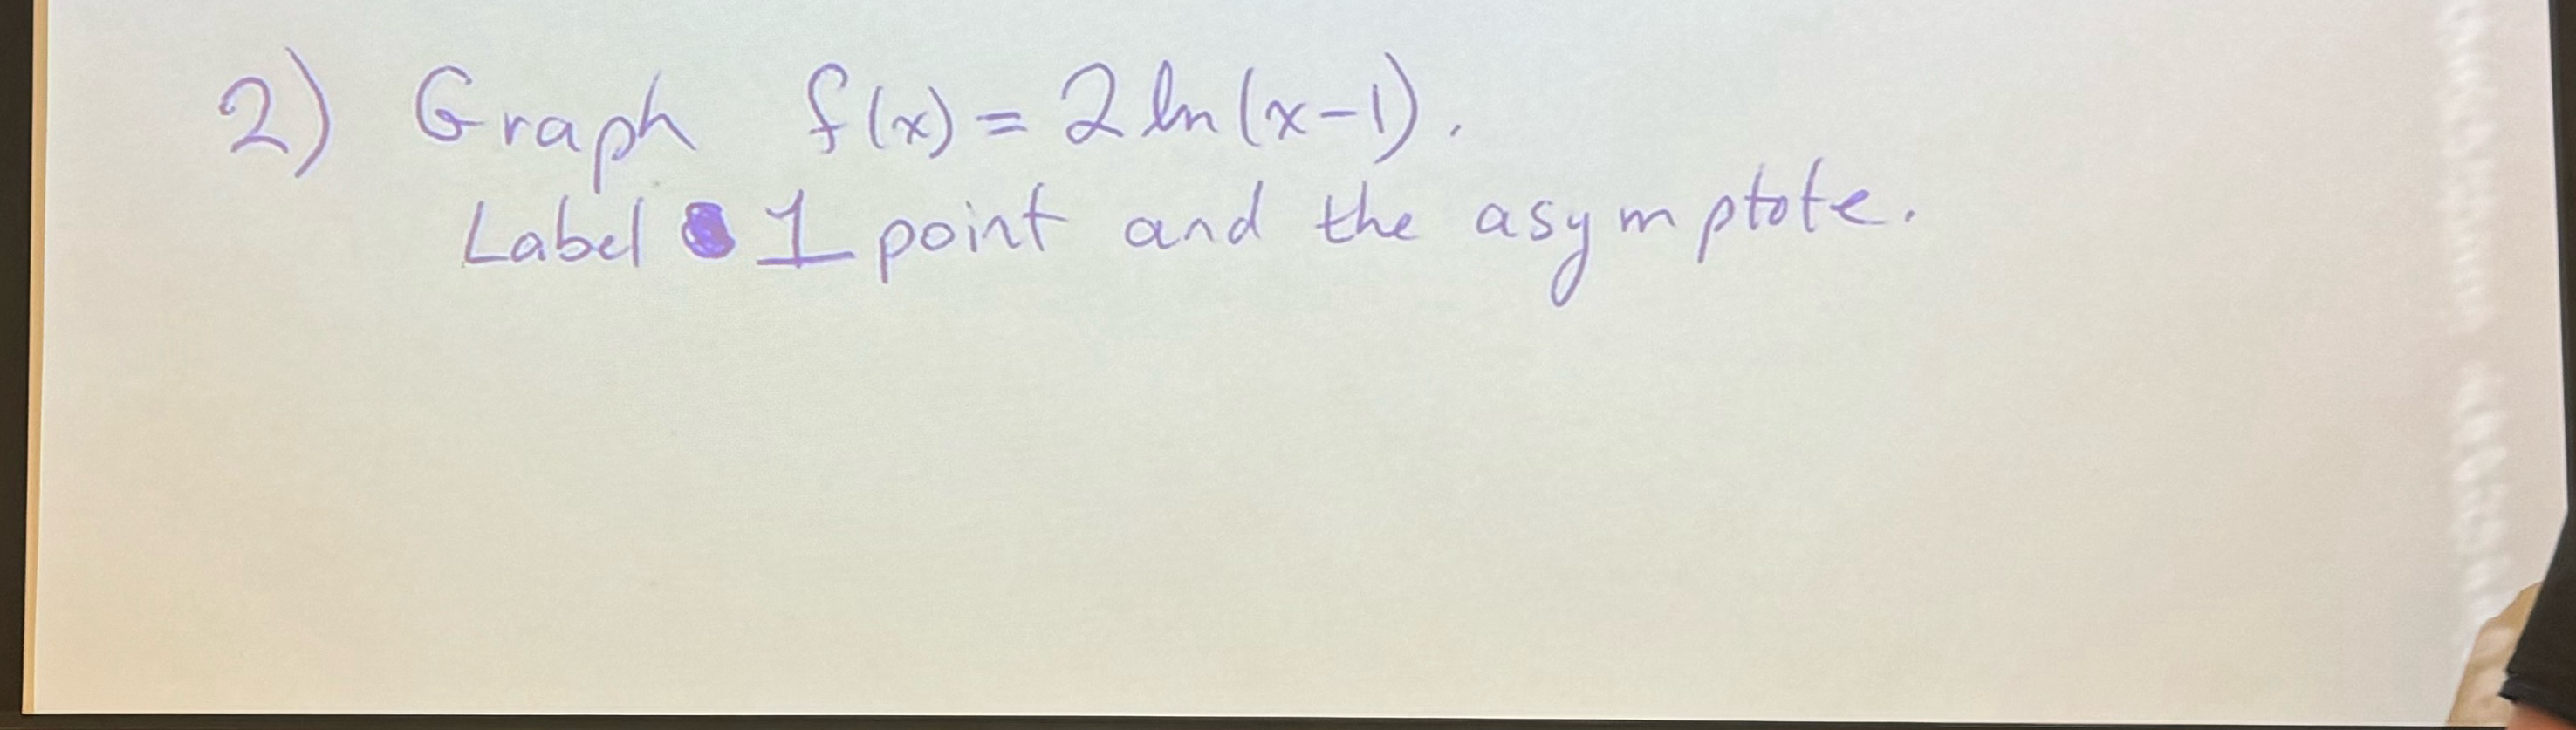 2) Graph f(x) = 2 ln(x-1).
Label 1 point and the asymptote.